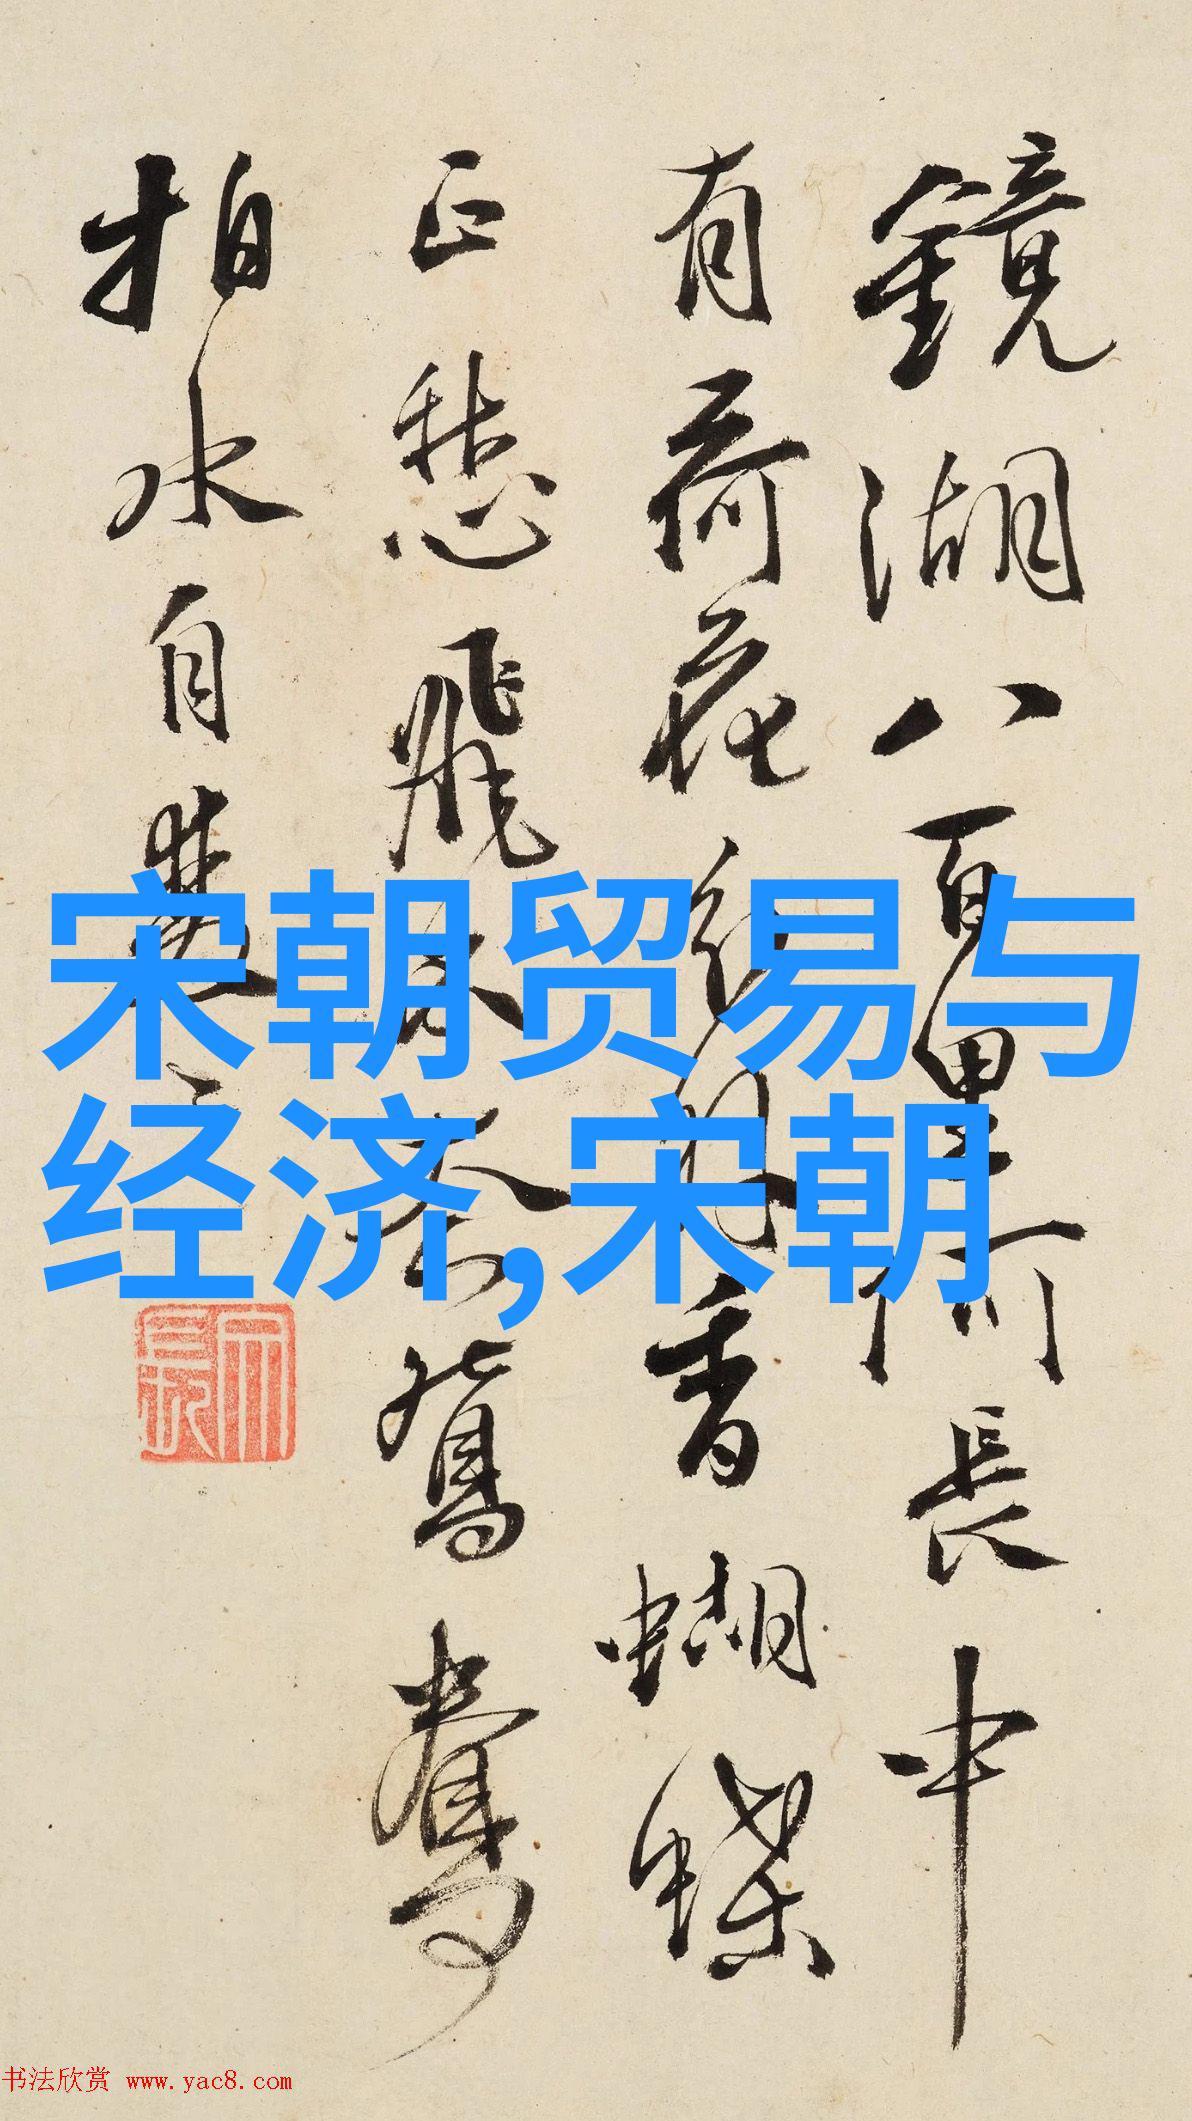 鏡湖八百里何長中
有荷花香蝴蝶
正愁飛不去鴛鴦
拍水自雙
宋朝贸易与
经济,宋朝
书法欣赏 www.yac8.com